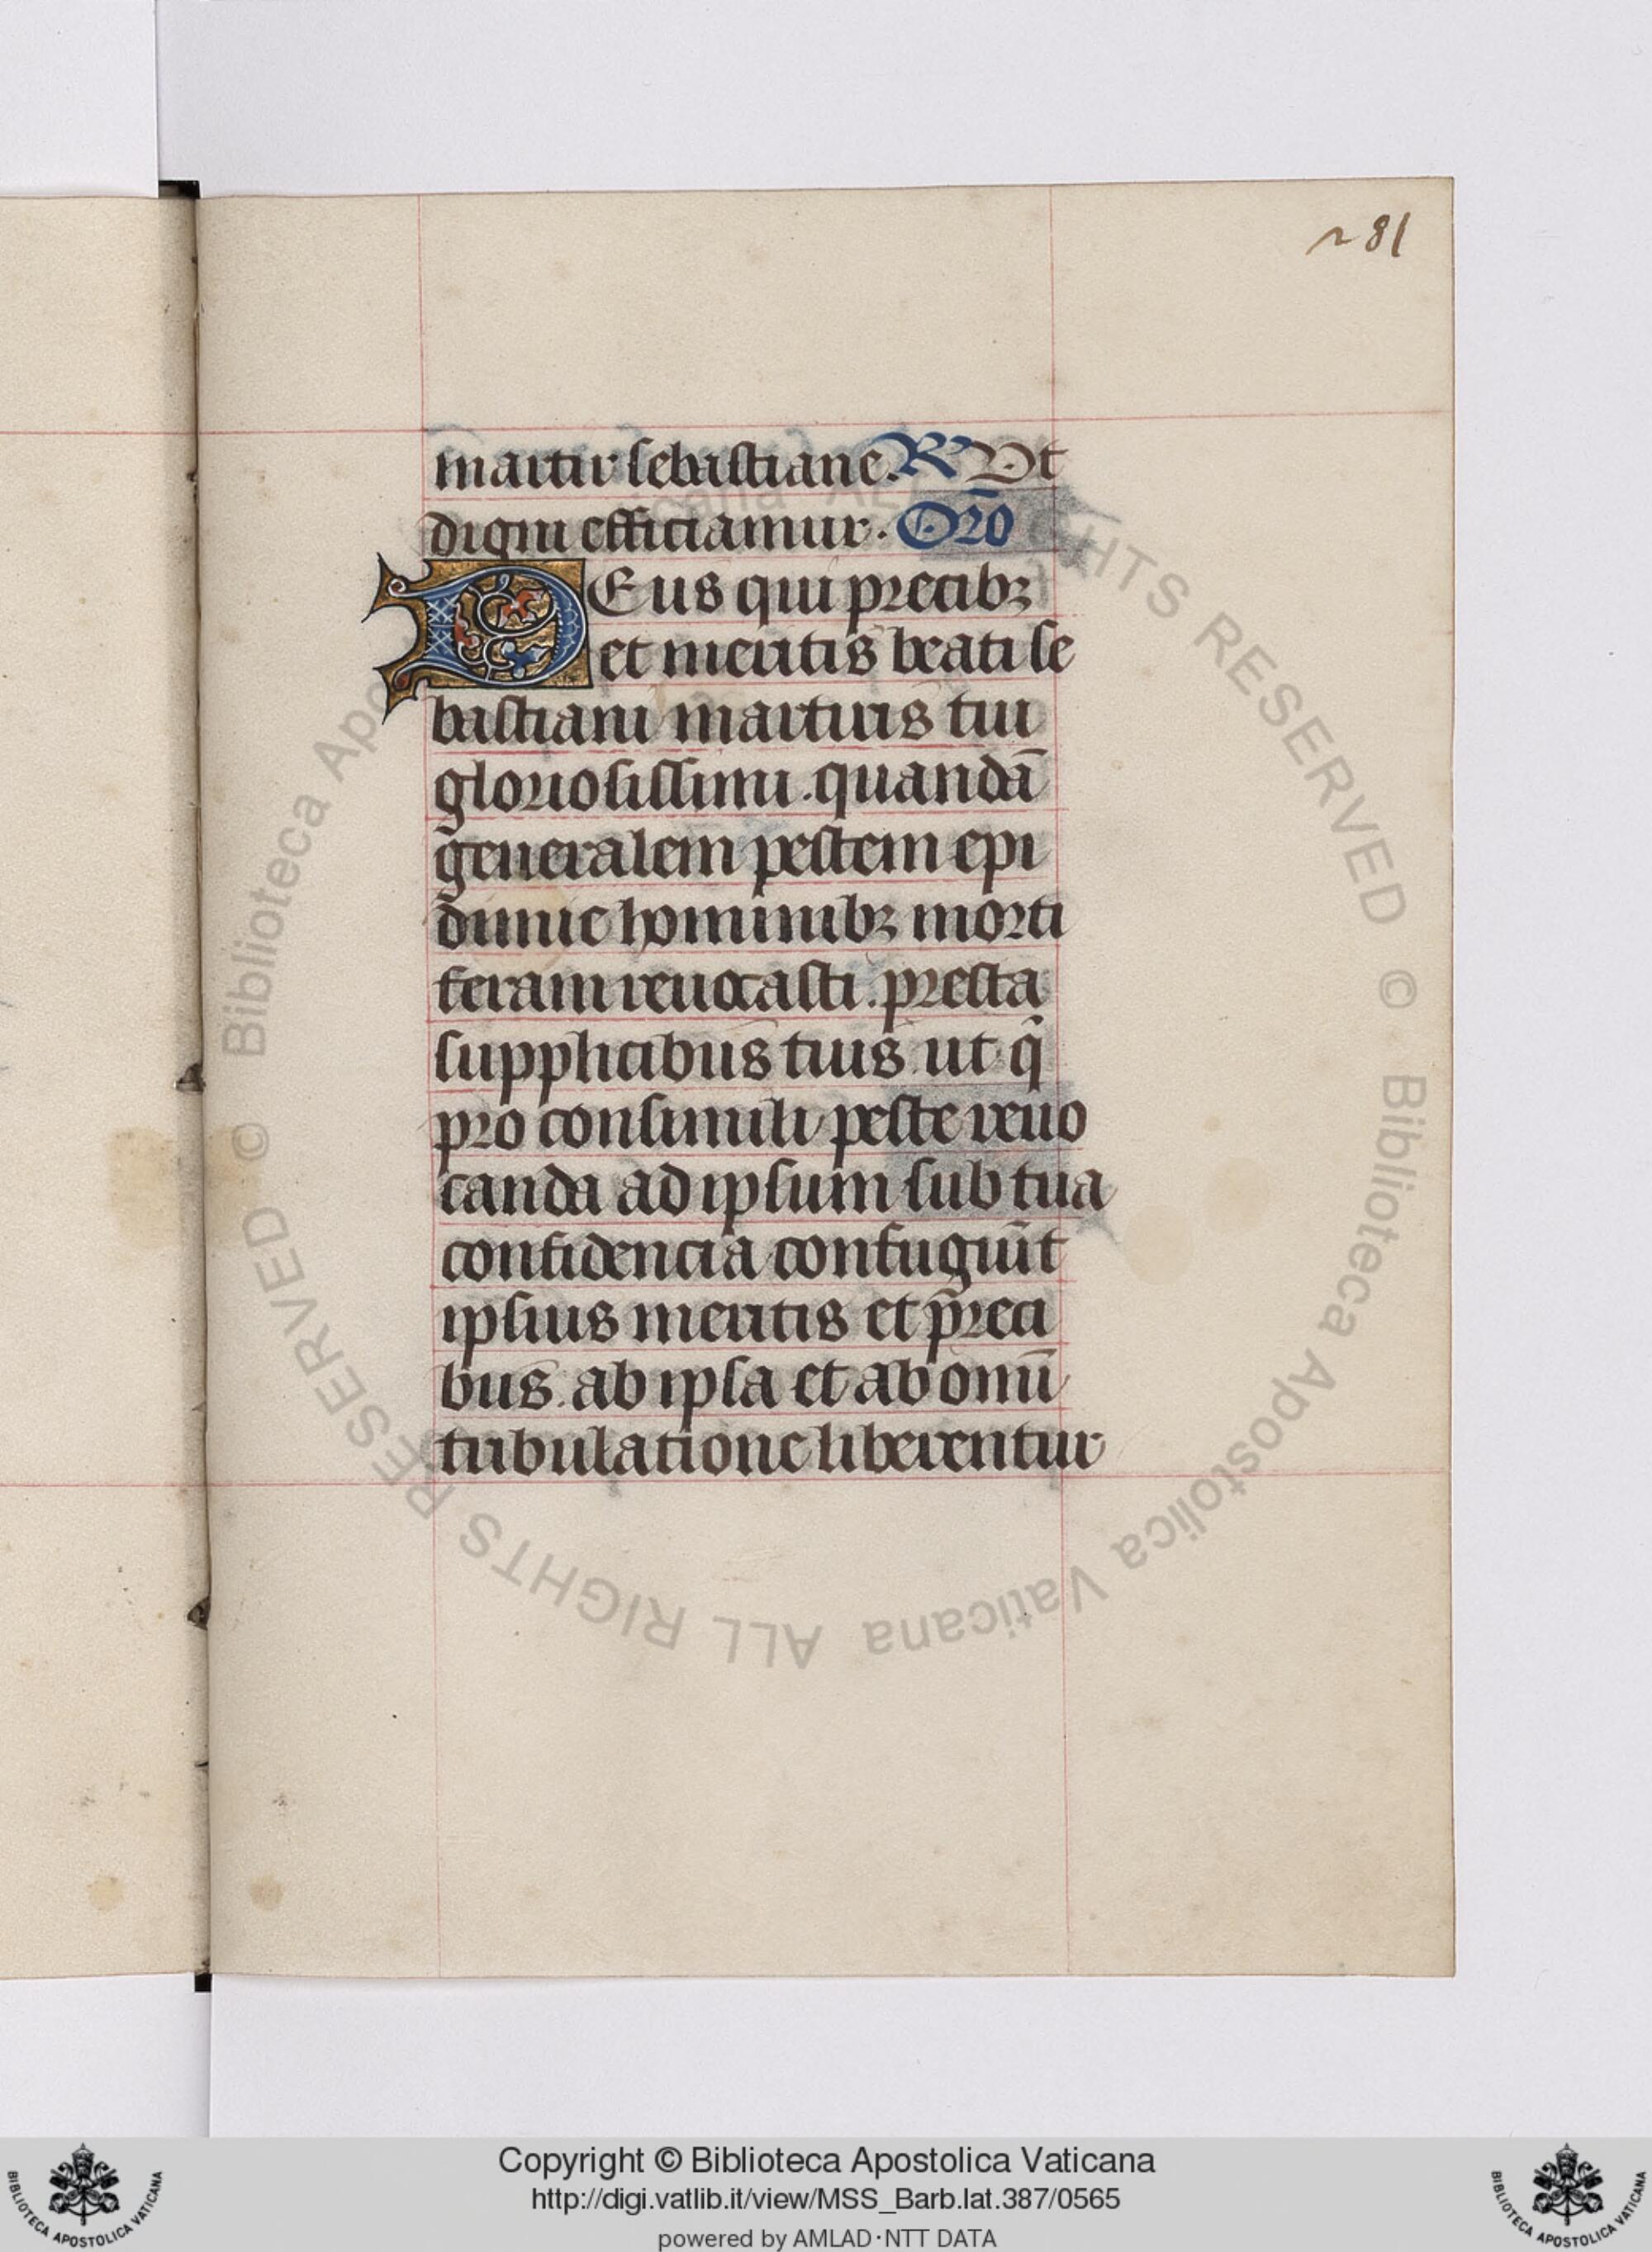 281
martir sebastiane. R Vt
digni efficiamur. Orō
DEus qui precibꝫ
et meritis beati se
bastiani martiris tui
gloriosissimi. quandā
generalem pestem epi
dimie hominibꝫ morti
feram reuocasti. presta
supplicibus tuis. ut q̄
pro consimili peste reuo
canda ad ipsum sub tua
confidencia confugiūt
ipsius meritis et preci
bus. ab ipsa et ab omī
tribulatione liberentur
© Biblioteca Apostolica Vaticana ALL RIGHTS RESERVED © Biblioteca Apostolica Vaticana ALL RIGHTS RESERVED
Copyright © Biblioteca Apostolica Vaticana
http://digi.vatlib.it/view/MSS_Barb.lat.387/0565
powered by AMLAD·NTT DATA
BIBLIOTECA APOSTOLICA VATICANA
BIBLIOTECA APOSTOLICA VATICANA